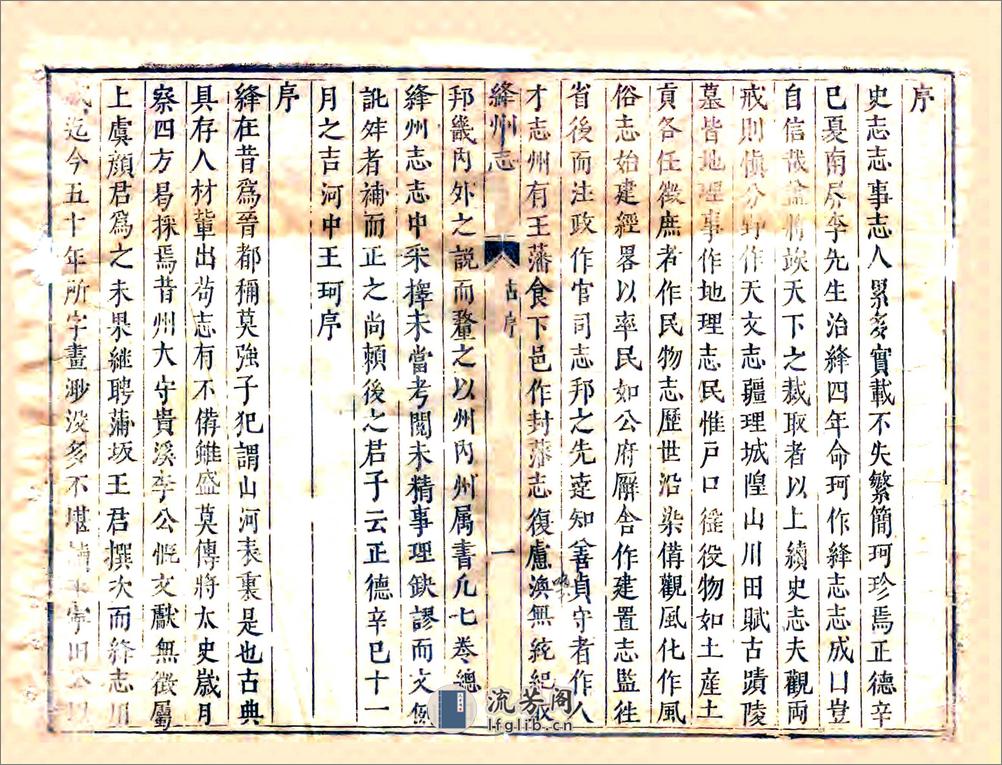 序
史志志事志人累多實載不失繁簡珂珍焉正德辛
巳夏南李先生治絳四年命珂作絳志志成曰豈
自信哉盖將竢天下之裁取者以上續史志夫觀兩
戒則慎分野作天文志疆理城隍山川田賦古蹟陵
墓皆地理事作地理志民惟戶口徭役物如土産土
貢各任徵庶者作民物志歷世沿染備觀風化作風
俗志始建經畧以率民如公府廨舍作建置志監徃
省後而法政作官司志邦之先逹知善貞守者作人
才志州有王藩食下邑作封藩志復慮渙無統紀取
絳州志 古序 一
邦畿內外之說而釐之以州內州属書凢七卷總
絳州志志中采擇未當考閱未精事理缺謬而文無
訛舛者補而正之尚頼後之君子云正德辛巳十一
月之吉河中王珂序
序
絳在昔爲晉都稱莫強子犯謂山河表裏是也古典
具存人材軰出茍志有不備雖盛莫傳將太史嵗月
察四方曷採焉昔州大守貴溪李公慨文獻無徵屬
上虞顔君爲之未果継聘蒲坂王君撰次而絳志川
迄今五十年所字畫渺沒多不堪讀守田公
流芳阁
lfglib.cn